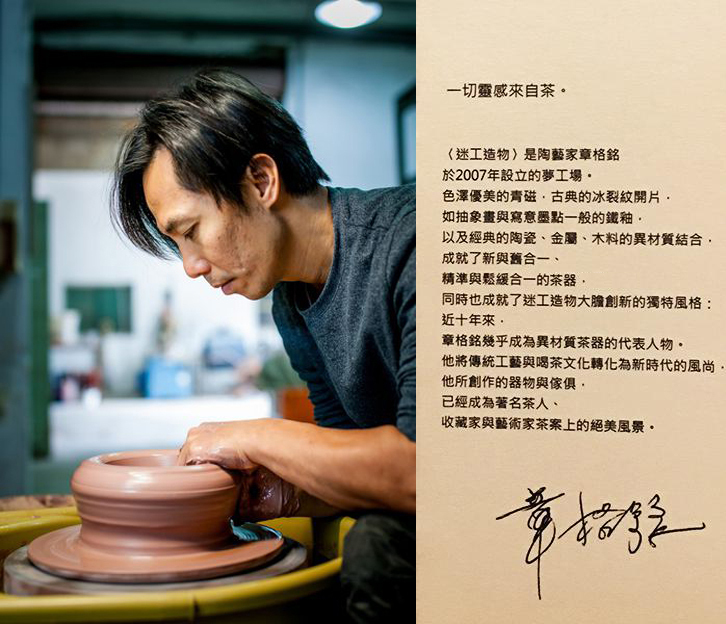 一切靈感來自茶。
〈迷工造物〉是陶藝家章格銘
於2007年設立的夢工場。
色澤優美的青磁，古典的冰裂紋開片，
如抽象畫與寫意墨點一般的鐵釉，
以及經典的陶瓷、金屬、木料的異材質結合，
成就了新與舊合一、
精準與鬆緩合一的茶器，
同時也成就了迷工造物大膽創新的獨特風格：
近十年來，
章格銘幾乎成為異材質茶器的代表人物。
他將傳統工藝與喝茶文化轉化為新時代的風尚，
他所創作的器物與傢俱，
已經成為著名茶人、
收藏家與藝術家茶案上的絕美風景。
章格銘